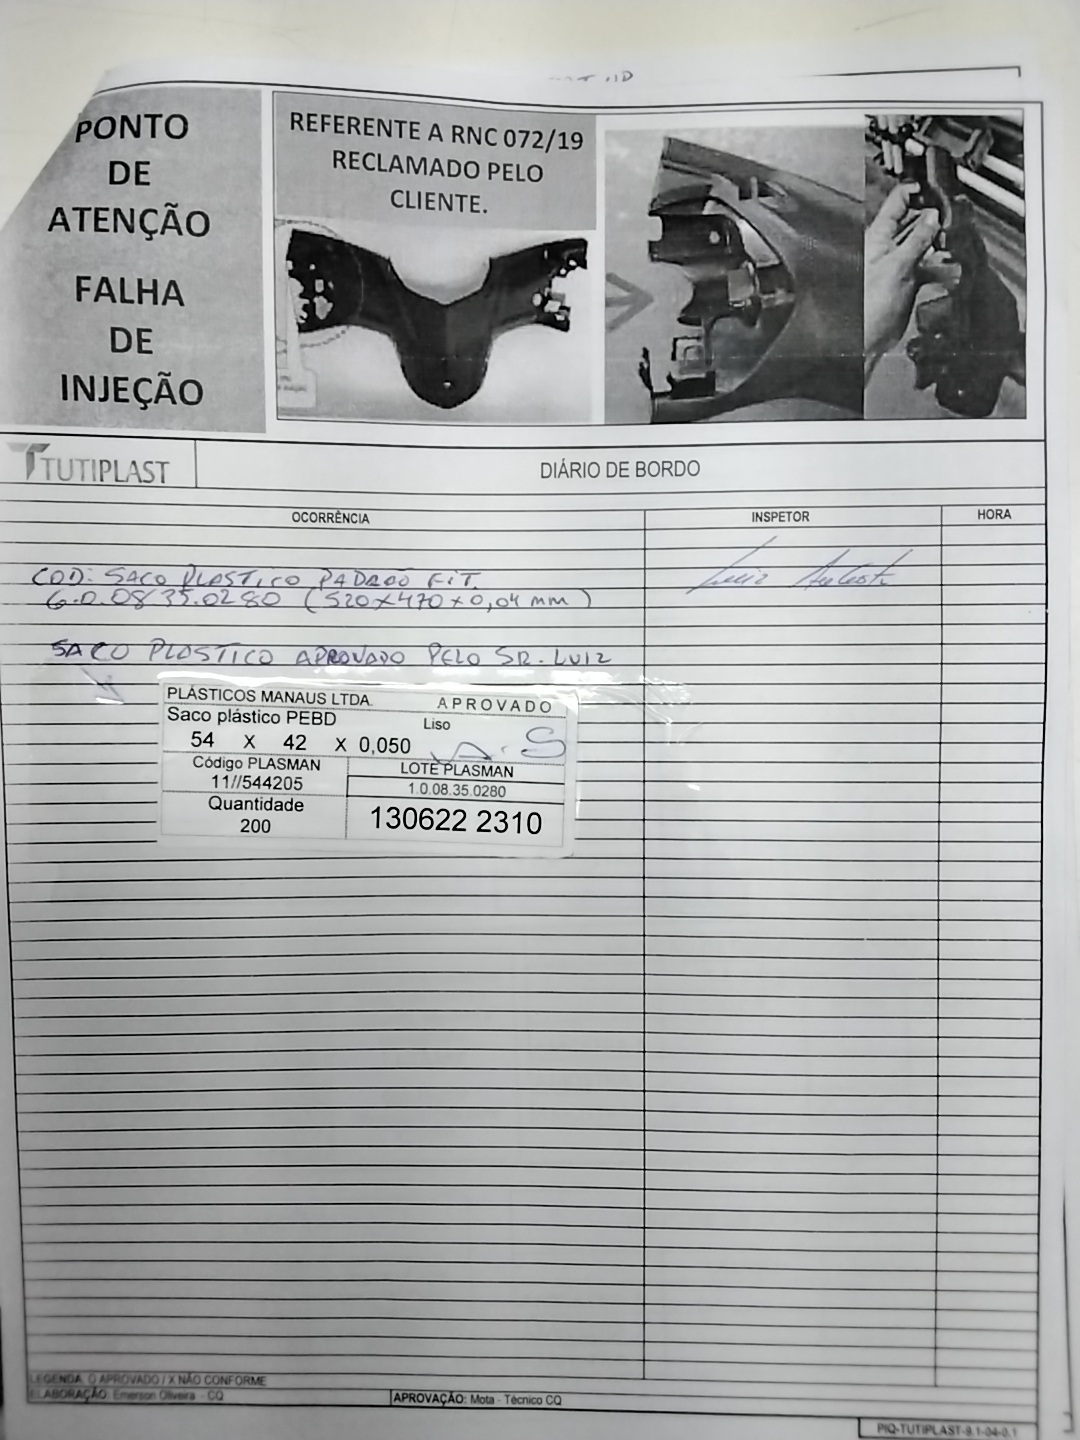 PONTO
DE
ATENÇÃO
FALHA
DE
INJEÇÃO
REFERENTE A RNC 072/19
RECLAMADO PELO
CLIENTE.
TUTIPLAST
DIÁRIO DE BORDO
OCORRÊNCIA
INSPETOR
HORA
COD: SACO PLASTICO PADRÃO FIT.
6.0.08.35.0280 (520X470X0,04 mm)
Luiz
SACO PLASTICO APROVADO PELO SR. LUIZ
PLÁSTICOS MANAUS LTDA.
APROVADO
Saco plástico PEBD
Liso
54 X 42 X 0,050
Código PLASMAN
11//544205
LOTE PLASMAN
1.0.08.35.0280
Quantidade
200
130622 2310
LEGENDA: O APROVADO / X NÃO CONFORME
ELABORAÇÃO: Emerson Oliveira - CQ
APROVAÇÃO: Mota - Técnico CQ
PIQ-TUTIPLAST-8.1-04-0.1